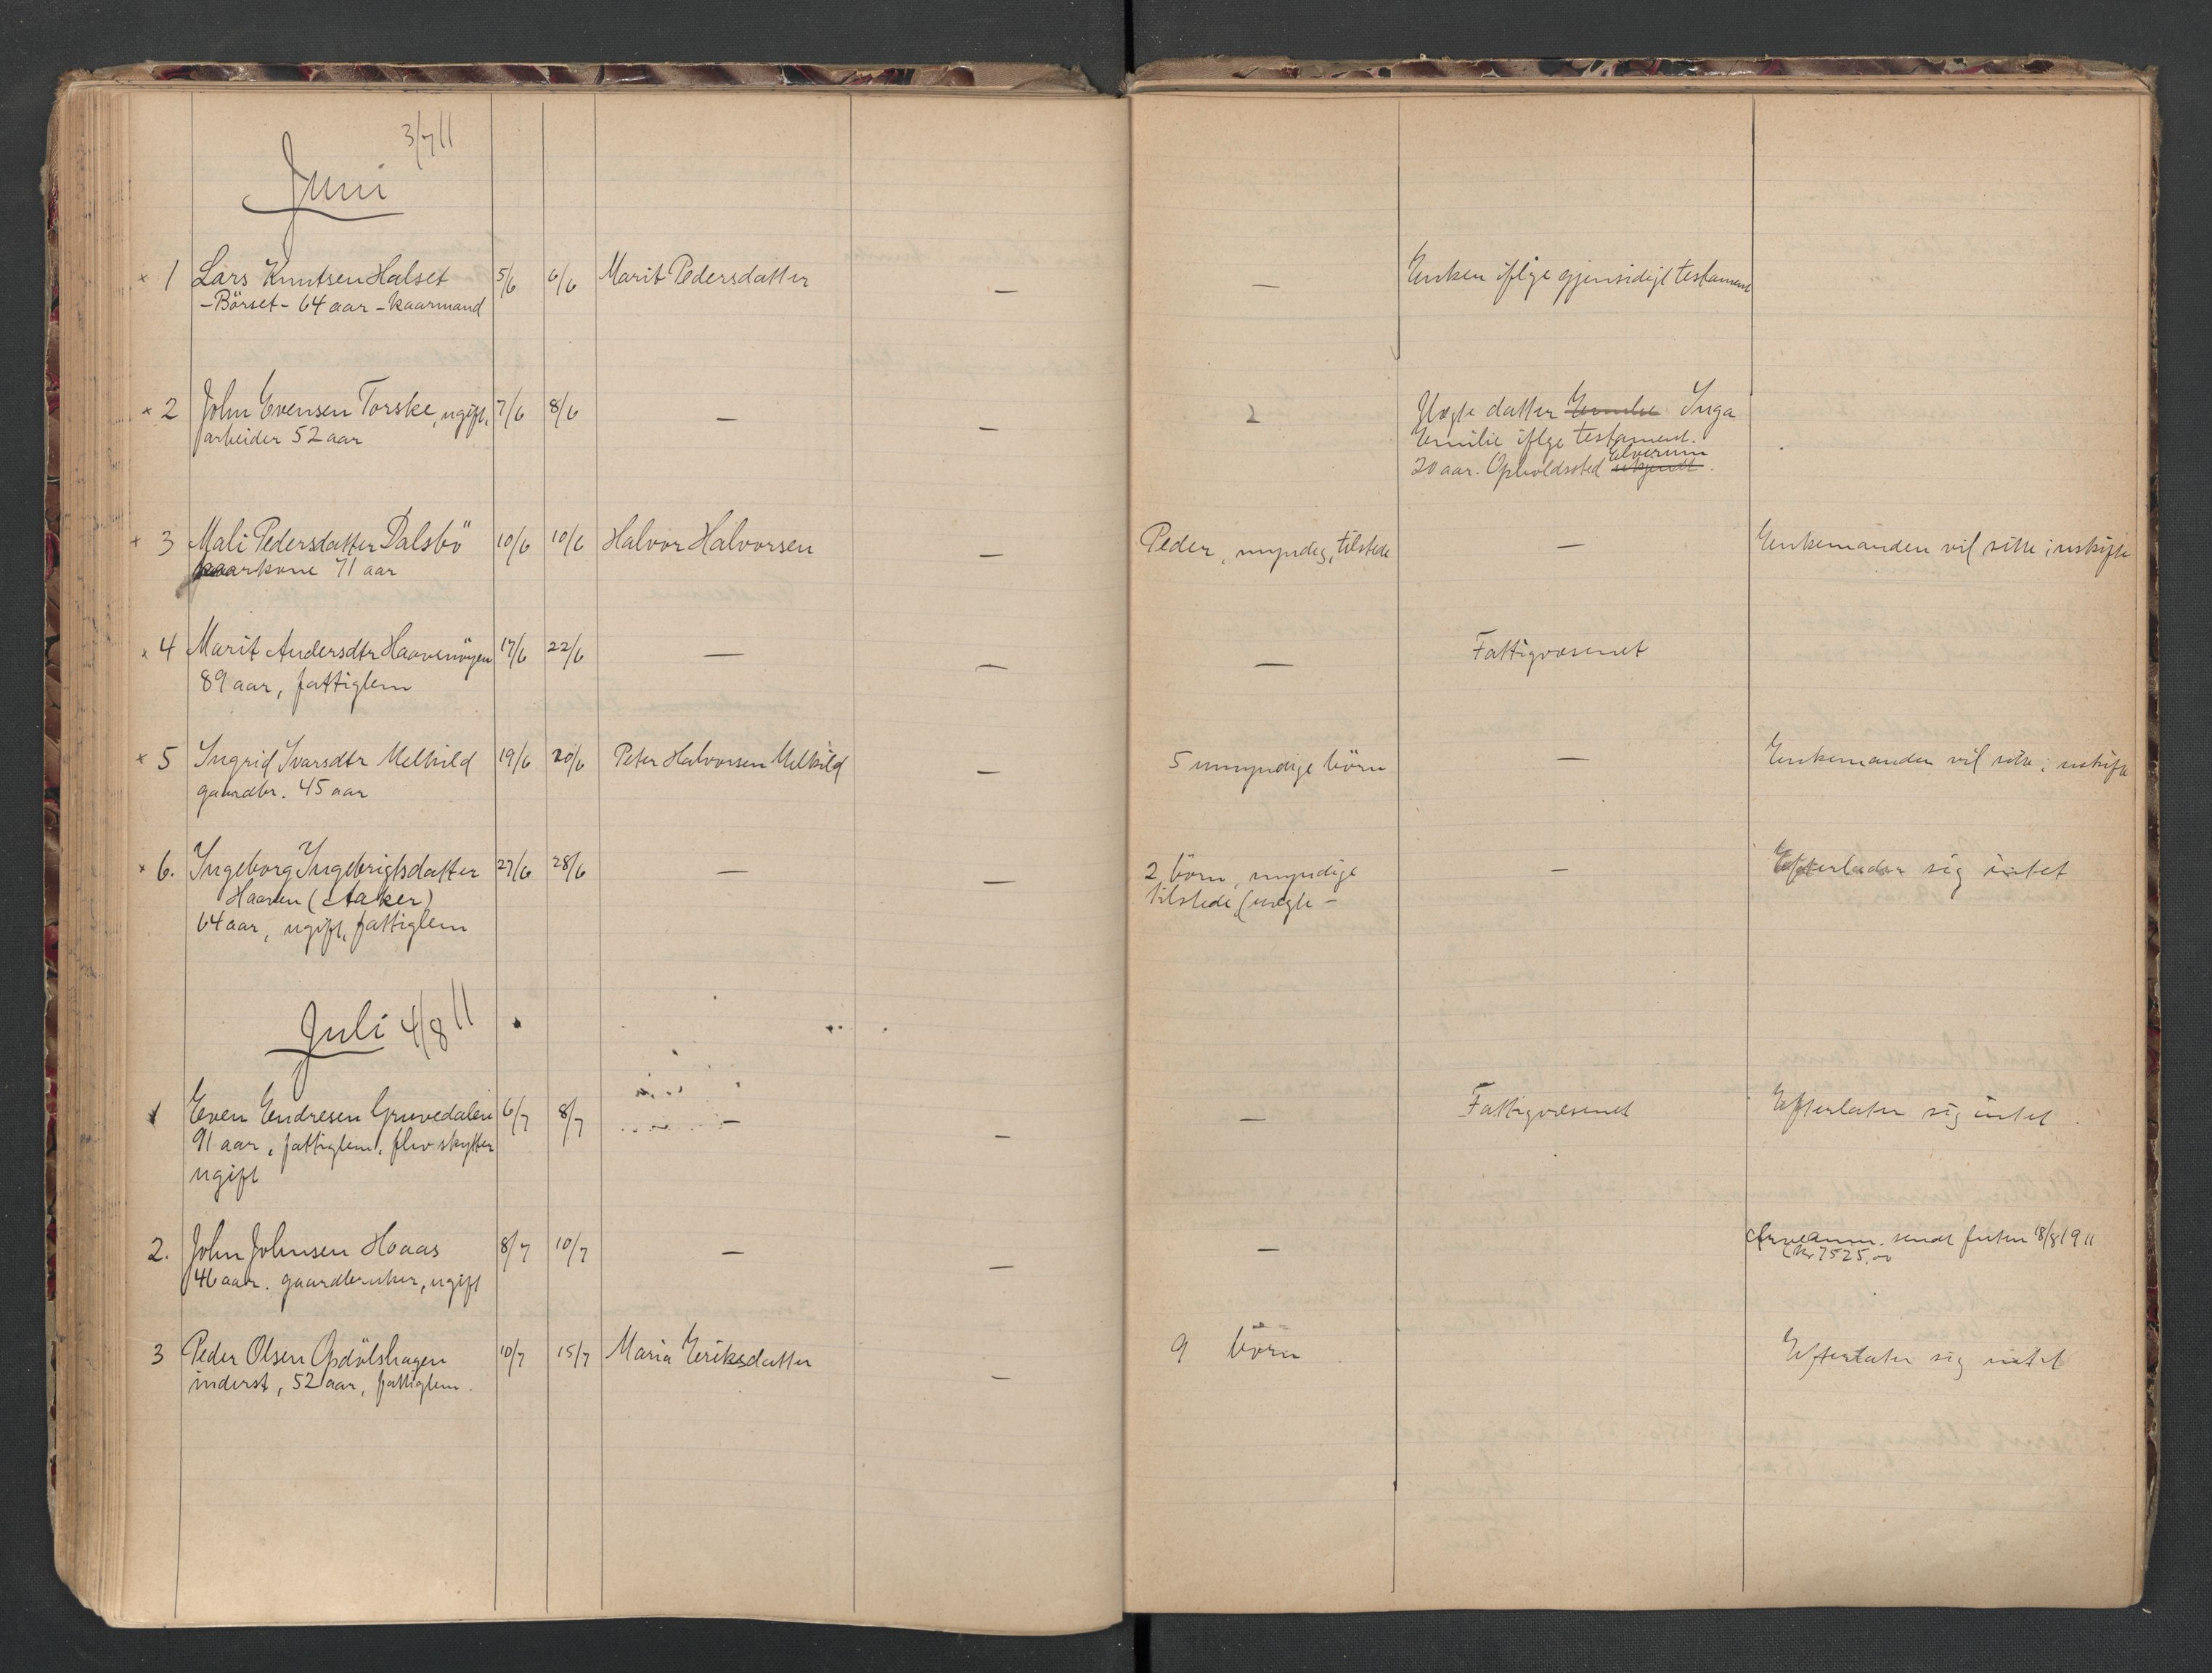 3/7 11
Juni
× 1 Lars Knutsen Halset 5/6 6/6 Marit Pedersdatter — — Enken iflge gjensidigt testament
- Börset - 64 aar - kaarmand
× 2 John Evensen Torske, ugift, 7/6 8/6 — — 2 Uegte datter Emilie Inga
arbeider 52 aar
Emilie iflge testament.
Elverum
20 aar. Opholdssted ukjendt.
× 3 Mali Pedersdatter Dalsbö 10/6 10/6 Halvor Halvorsen — Peder, myndig, tilstede — Enkemanden vil sitte i uskifte
kaarkone 71 aar
× 4 Marit Andersdtr Haavenöyen 17/6 22/6 — — — Fattigvæsenet
89 aar, fattiglem
× 5 Ingrid Ivarsdtr Melhild 19/6 20/6 Peter Halvorsen Melhild — 5 umyndige börn — Enkemanden vil sitte i uskifte
gaardbr. 45 aar
× 6. Ingeborg Ingebrigtsdatter 27/6 28/6 — — 2 börn, myndige — Efterlader sig intet
Haaven (Aaker)
tilstede (uegte -
64 aar, ugift, fattiglem
Juli 4/8 11
1 Even Endresen Gruvedalen 6/7 8/7 — — — Fattigvæsenet Efterlater sig intet.
91 aar, fattiglem, skytter
ugift
2. John Johnsen Hoaas 8/7 10/7 — — — Arveanm. sendt futen 18/8 1911
(kr 7525.00
46 aar. gaardbruker, ugift
3 Peder Olsen Opdölshagen 10/7 15/7 Maria Eriksdatter — 9 börn Efterlater sig intet
inderst, 52 aar, fattiglem.